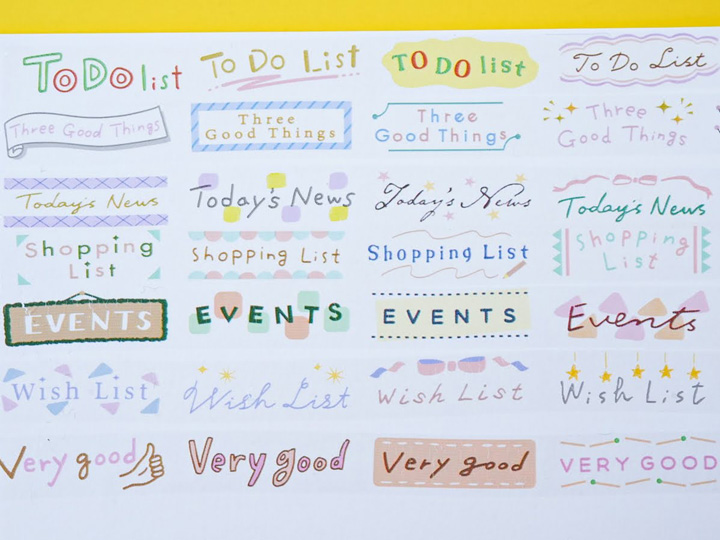 ToDo list
To Do List
TO DO list
To Do List
Three Good Things
Three
Good Things
Three
Good Things
Three
Good Things
Today's News
Today's News
Today's News
Today's News
Shopping
List
Shopping List
Shopping List
Shopping
List
EVENTS
EVENTS
EVENTS
Events
Wish List
Wish List
Wish List
Wish List
Very good
Very good
Very good
VERY GOOD